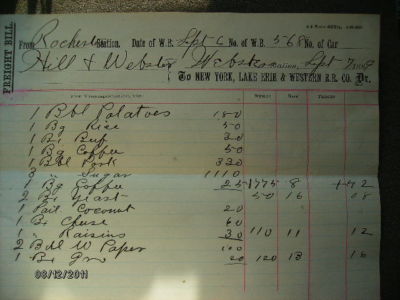 FREIGHT BILL.
From Rochester Station. Date of W.B. Sept 6 No. of W.B. 568 No. of Car
Hill & Webster Webster Station, Sept 7 1869
To NEW YORK, LAKE ERIE & WESTERN R.R. CO. Dr.
For Transportation, viz:
1 Bbl Potatoes 180
1 Bg Rice 50
1 Bx Beef 30
1 Bg Coffee 50
1 Bbl Pork 320
3 " Sugar 1110
1 Bg Coffee 25 1775 8 1 42
2 Bx Yeast 50 16 08
1 Pail Coconut 20
1 Bx Cheese 60
1 " Raisins 30 110 11 12
2 Bdl W Paper 100
1 Bx 20 120 13 16
08/12/2011